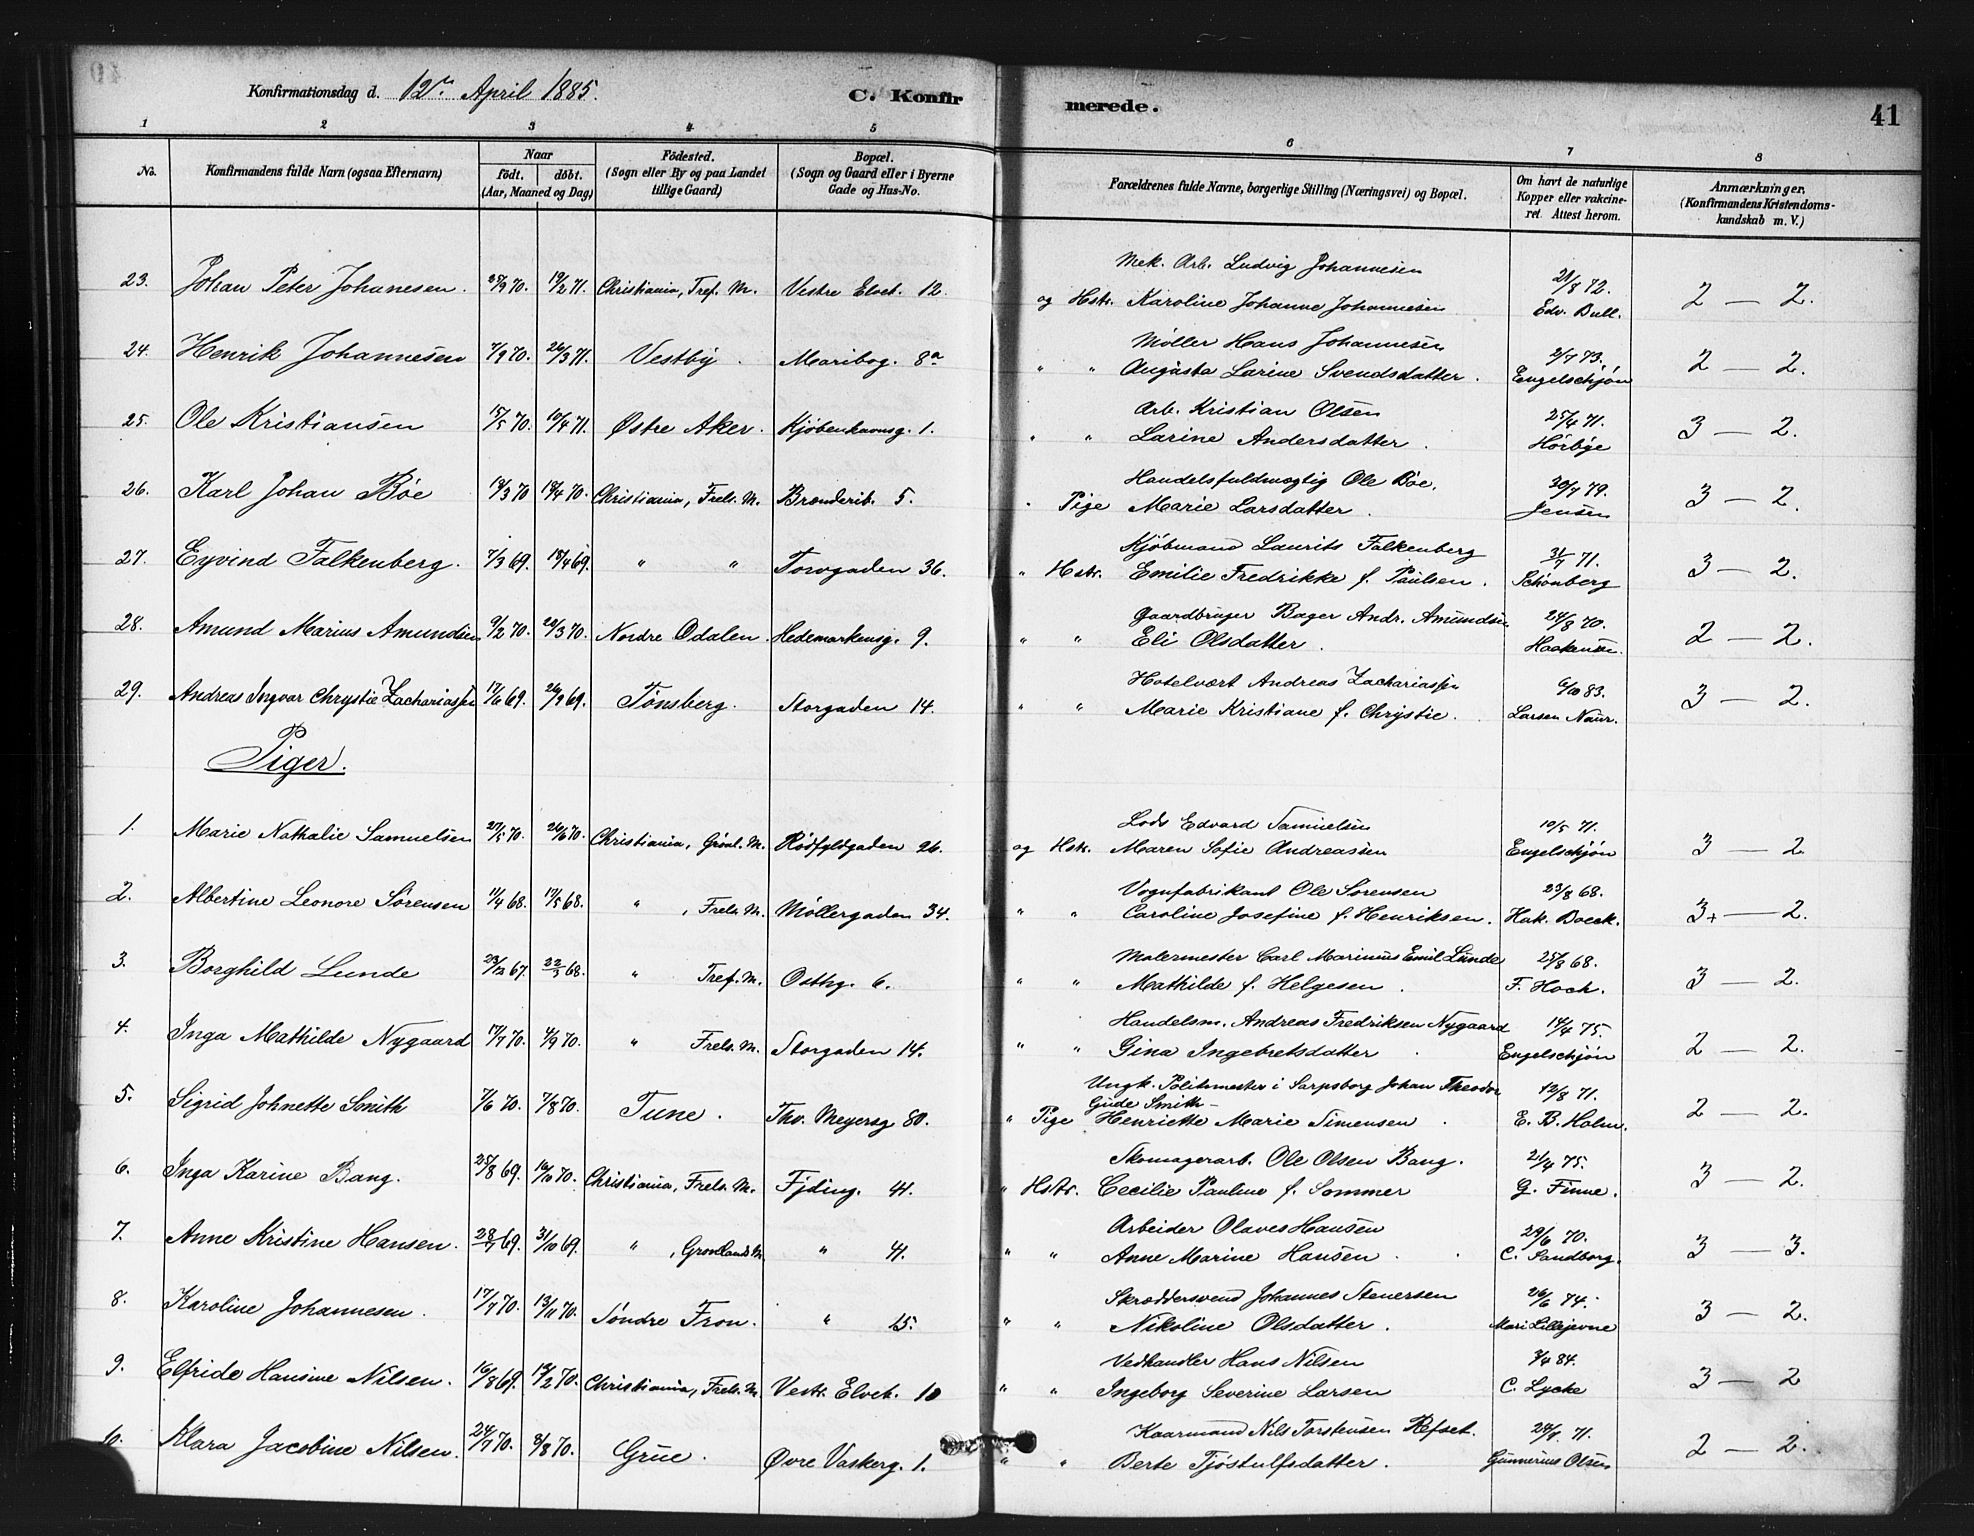 Konfirmationsdag d. 12te April 1885.
C. Konfirmerede.
41
1 2 3 4 5 6 7 8
No.
Konfirmandens fulde Navn (ogsaa Efternavn)
Naar
födt. döbt.
(Aar, Maaned og Dag)
Födested.
(Sogn eller By og paa Landet
tillige Gaard)
Bopæl.
(Sogn og Gaard eller i Byerne
Gade og Hus-No.
Forældrenes fulde Navne, borgerlige Stilling (Næringsvei) og Bopæl.
Om havt de naturlige
Kopper eller vakcine-
ret. Attest herom.
Anmærkninger.
(Konfirmandens Kristendoms-
kundskab m. V.)
Mek. Arb. Ludvig Johannesen
23. Johan Peter Johanesen. 25/9 70. 19/2 71. Christiania, Tref. M. Vestre Elvet. 12. og Hstr. Karoline Johanne Johannesen 21/8 72. Edv. Bull. 2 — 2.
Møller Hans Johannesen
24. Henrik Johannesen 7/9 70. 26/3 71. Vestby. Maribog. 8a " " Augusta Larine Svendsdatter. 2/7 73. Engelschjøn 2 — 2.
Arb. Kristian Olsen
25. Ole Kristiansen 15/5 70. 10/4 71. Østre Aker. Kjøbenhavnsg. 1. " " Larine Andersdatter. 25/4 71. Hørbye 3 — 2.
Handelsfuldmægtig Ole Böe.
26. Karl Johan Böe 19/3 70 19/4 70. Christiania, Frels. M. Brænderib. 5. " Pige Marie Larsdatter. 30/7 79. Jensen 3 — 2.
Kjøbmand Laurits Falkenberg
27. Eyvind Falkenberg. 7/3 69. 18/4 69. " " Torvgaden 36. " Hstr. Emilie Fredrikke f. Paulsen. 31/7 71. Schønberg 3 — 2.
Gaardbruger Bager Andr. Amundsen
28. Amund Marius Amundsen 9/2 70. 20/3 70. Nordre Odalen. Hedemarkensg. 9. " " Eli Olsdatter. 24/8 70. 2 — 2.
Hotelvært Andreas Zachariassen
29. Andreas Ingvar Chrystie Zachariassen 17/6 69. 26/9 69. Tønsberg. Storgaden 14. " " Marie Kristiane f. Chrystie. 6/10 83. Larsen Naur. 3 — 2.
Piger.
Lods Edvard Samuelsen
1. Marie Nathalie Samuelsen 27/5 70. 26/6 70. Christiania, Grønl. M. Rødfyldgaden 26. og Hstr. Maren Sofie Andreassen 10/5 71. Engelschjøn 3 — 2
Vognfabrikant Ole Sørensen
2. Albertine Leonore Sørensen 11/4 68. 17/5 68. " , Frels. M. Møllergaden 34. " " Caroline Josefine f. Henriksen. 23/8 68. Hak. Boeck. 3+ — 2.
Malermester Carl Marinius Emil Lunde
3. Borghild Lunde 23/12 67. 22/3 68. " Tref. M. Osthg. 6. " " Mathilde f. Helgesen. 25/8 68. F. Hoch. 3 — 2.
Handelsm. Andreas Fredriksen Nygaard
4. Inga Mathilde Nygaard 17/7 70. 4/9 70. " Frels. M. Storgaden 14. " " Gina Ingebretsdatter. 14/4 75. Engelschjøn 2 — 2.
Ungk. Politimester i Sarpsborg Johan Theodor
Gude Smith —
5. Sigrid Johnette Smith 7/6 70. 7/8 70. Tune. Thv. Meyersg 80. " Pige Henriette Marie Simensen. 12/8 71. E. B. Holm. 2 — 2.
Skomagerarb. Ole Olsen Bang.
6. Inga Karine Bang. 25/8 69. 16/10 70. Christiania, Frels. M. Fjding. 4. " Hstr. Cecilie Pauline f. Sommer 21/4 75. G. Finne. 3 — 2.
Arbeider Olaves Hansen
7. Anne Kristine Hansen. 28/7 69. 31/10 69. " , Grønlands M. " 4. " " Anne Marine Hansen. 29/6 70. C. Sandborg. 3 — 3.
Skræddersvend Johannes Stenersen
8. Karoline Johannesen. 17/7 70. 13/11 70. Søndre Fron. " 15. " " Nikoline Olsdatter. 26/6 74. Mari Lillejevne 3 — 2.
Vedhandler Hans Nilsen
9. Elfride Hansine Nilsen. 16/8 69. 13/2 70. Christiania, Frels. M. Vestr. Elvet. 10 " " Ingeborg Severine Larsen 3/4 84. C. Lycke 3 — 2
Kaarmand Nils Torstensen Refset.
10. Klara Jacobine Nilsen. 24/7 70. 8/8 70. Grue. Øvre Vaskerg. 1. " " Berte Tjøstulfsdatter. 24/8 71. Gunnerius Olsen 2 — 2.